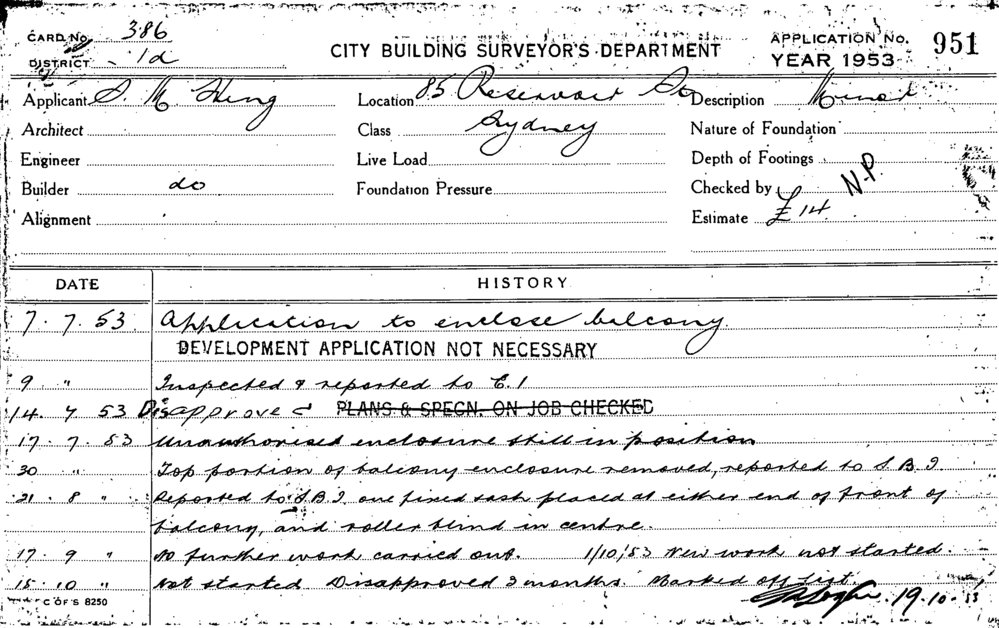 CARD No. 386
DISTRICT 1d
CITY BUILDING SURVEYOR'S DEPARTMENT
APPLICATION No. 951
YEAR 1953
Applicant S. M. Hing
Location 85 Reservoir St
Description Minor
Architect
Class Sydney
Nature of Foundation
Engineer
Live Load
Depth of Footings
Builder do
Foundation Pressure
Checked by N.P.
Alignment
Estimate £14
DATE HISTORY
7. 7. 53 Application to enclose balcony
DEVELOPMENT APPLICATION NOT NECESSARY
9 " Inspected & reported to C.I
14. 7 53 Disapproved PLANS & SPECN. ON JOB CHECKED
17. 7. 53 Unauthorised enclosure still in position
30 " Top portion of balcony enclosure removed, reported to S.B.I.
21. 8 " Reported to S.B.I. one fixed sash placed at either end of front of
balcony, and roller blind in centre.
17. 9 " No further work carried out. 1/10/53 New work not started.
15. 10 " Not started Disapproved 3 months. Marked off List.
19.10.53
C OF S 8250